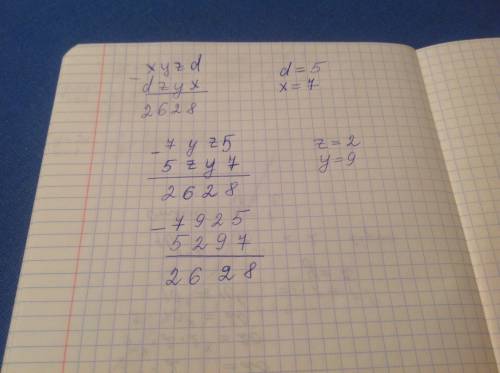 - x y z d
d z y x
2 6 2 8
d = 5
x = 7
- 7 y z 5
5 z y 7
2 6 2 8
z = 2
y = 9
- 7 9 2 5
5 2 9 7
2 6 2 8